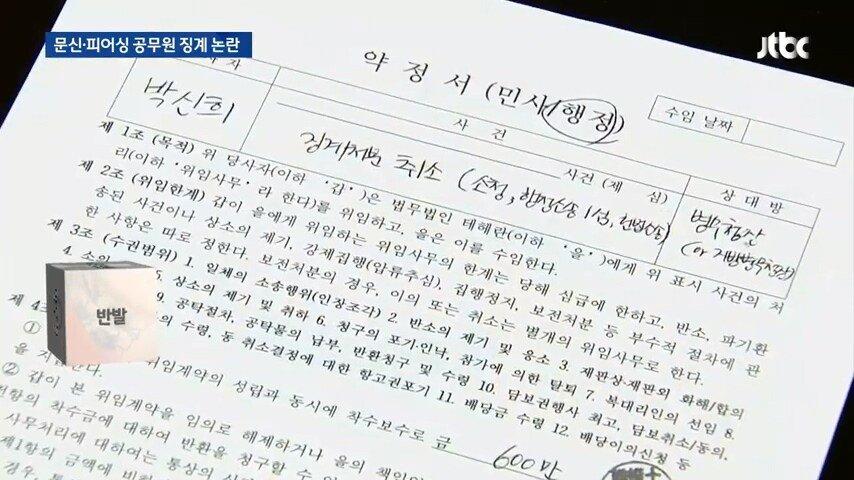 문신·피어싱 공무원 징계 논란
jtbc
약 정 서 (민사/행정)
사 자
사 건
수임 날짜
박신희
징계처분 취소 (소청, 행정소송 1심, 헌법소원)
사건 (제 심)
상 대 방
병무청장
(or 지방병무청장)
제 1조 (목적) 위 당사자(이하 '갑')은 법무법인 테헤란(이하 '을')에게 위 표시 사건의 처
리(이하 '위임사무'라 한다)를 위임하고, 을은 이를 수임한다.
제 2조 (위임한계) 갑이 을에게 위임하는 위임사무의 한계는 당해 심급에 한하고, 반소, 파기환
송된 사건이나 상소의 제기, 강제집행(압류추심), 집행정지, 보전처분 등 부수적 절차에 관
한 사항은 따로 정한다. 보전처분의 경우, 이의 또는 취소는 별개의 위임사무로 한다.
제 3조 (수권범위) 1. 일체의 소송행위(인장조각) 2. 반소의 제기 및 응소 3. 재판상·재판외 화해/합의
4. 소의 5. 상소의 제기 및 취하 6. 청구의 포기·인낙, 참가에 의한 탈퇴 7. 복대리인의 선임 8.
9. 공탁절차, 공탁물의 납부, 반환청구 및 수령 10. 담보권행사 최고, 담보취소/동의,
의 수령, 동 취소결정에 대한 항고권포기 11. 배당금 수령 12. 배당이의신청 등
반발
제 4
① 위임계약의 성립과 동시에 착수보수로 금 600만
을 지
② 갑이 본 위임계약을 임의로 해제하거나 을의 책임
전항의 착수금에 대하여 반환을 청구할 수
사무처리에 대하여는 통상의
제1항의 금액에 비
경우,